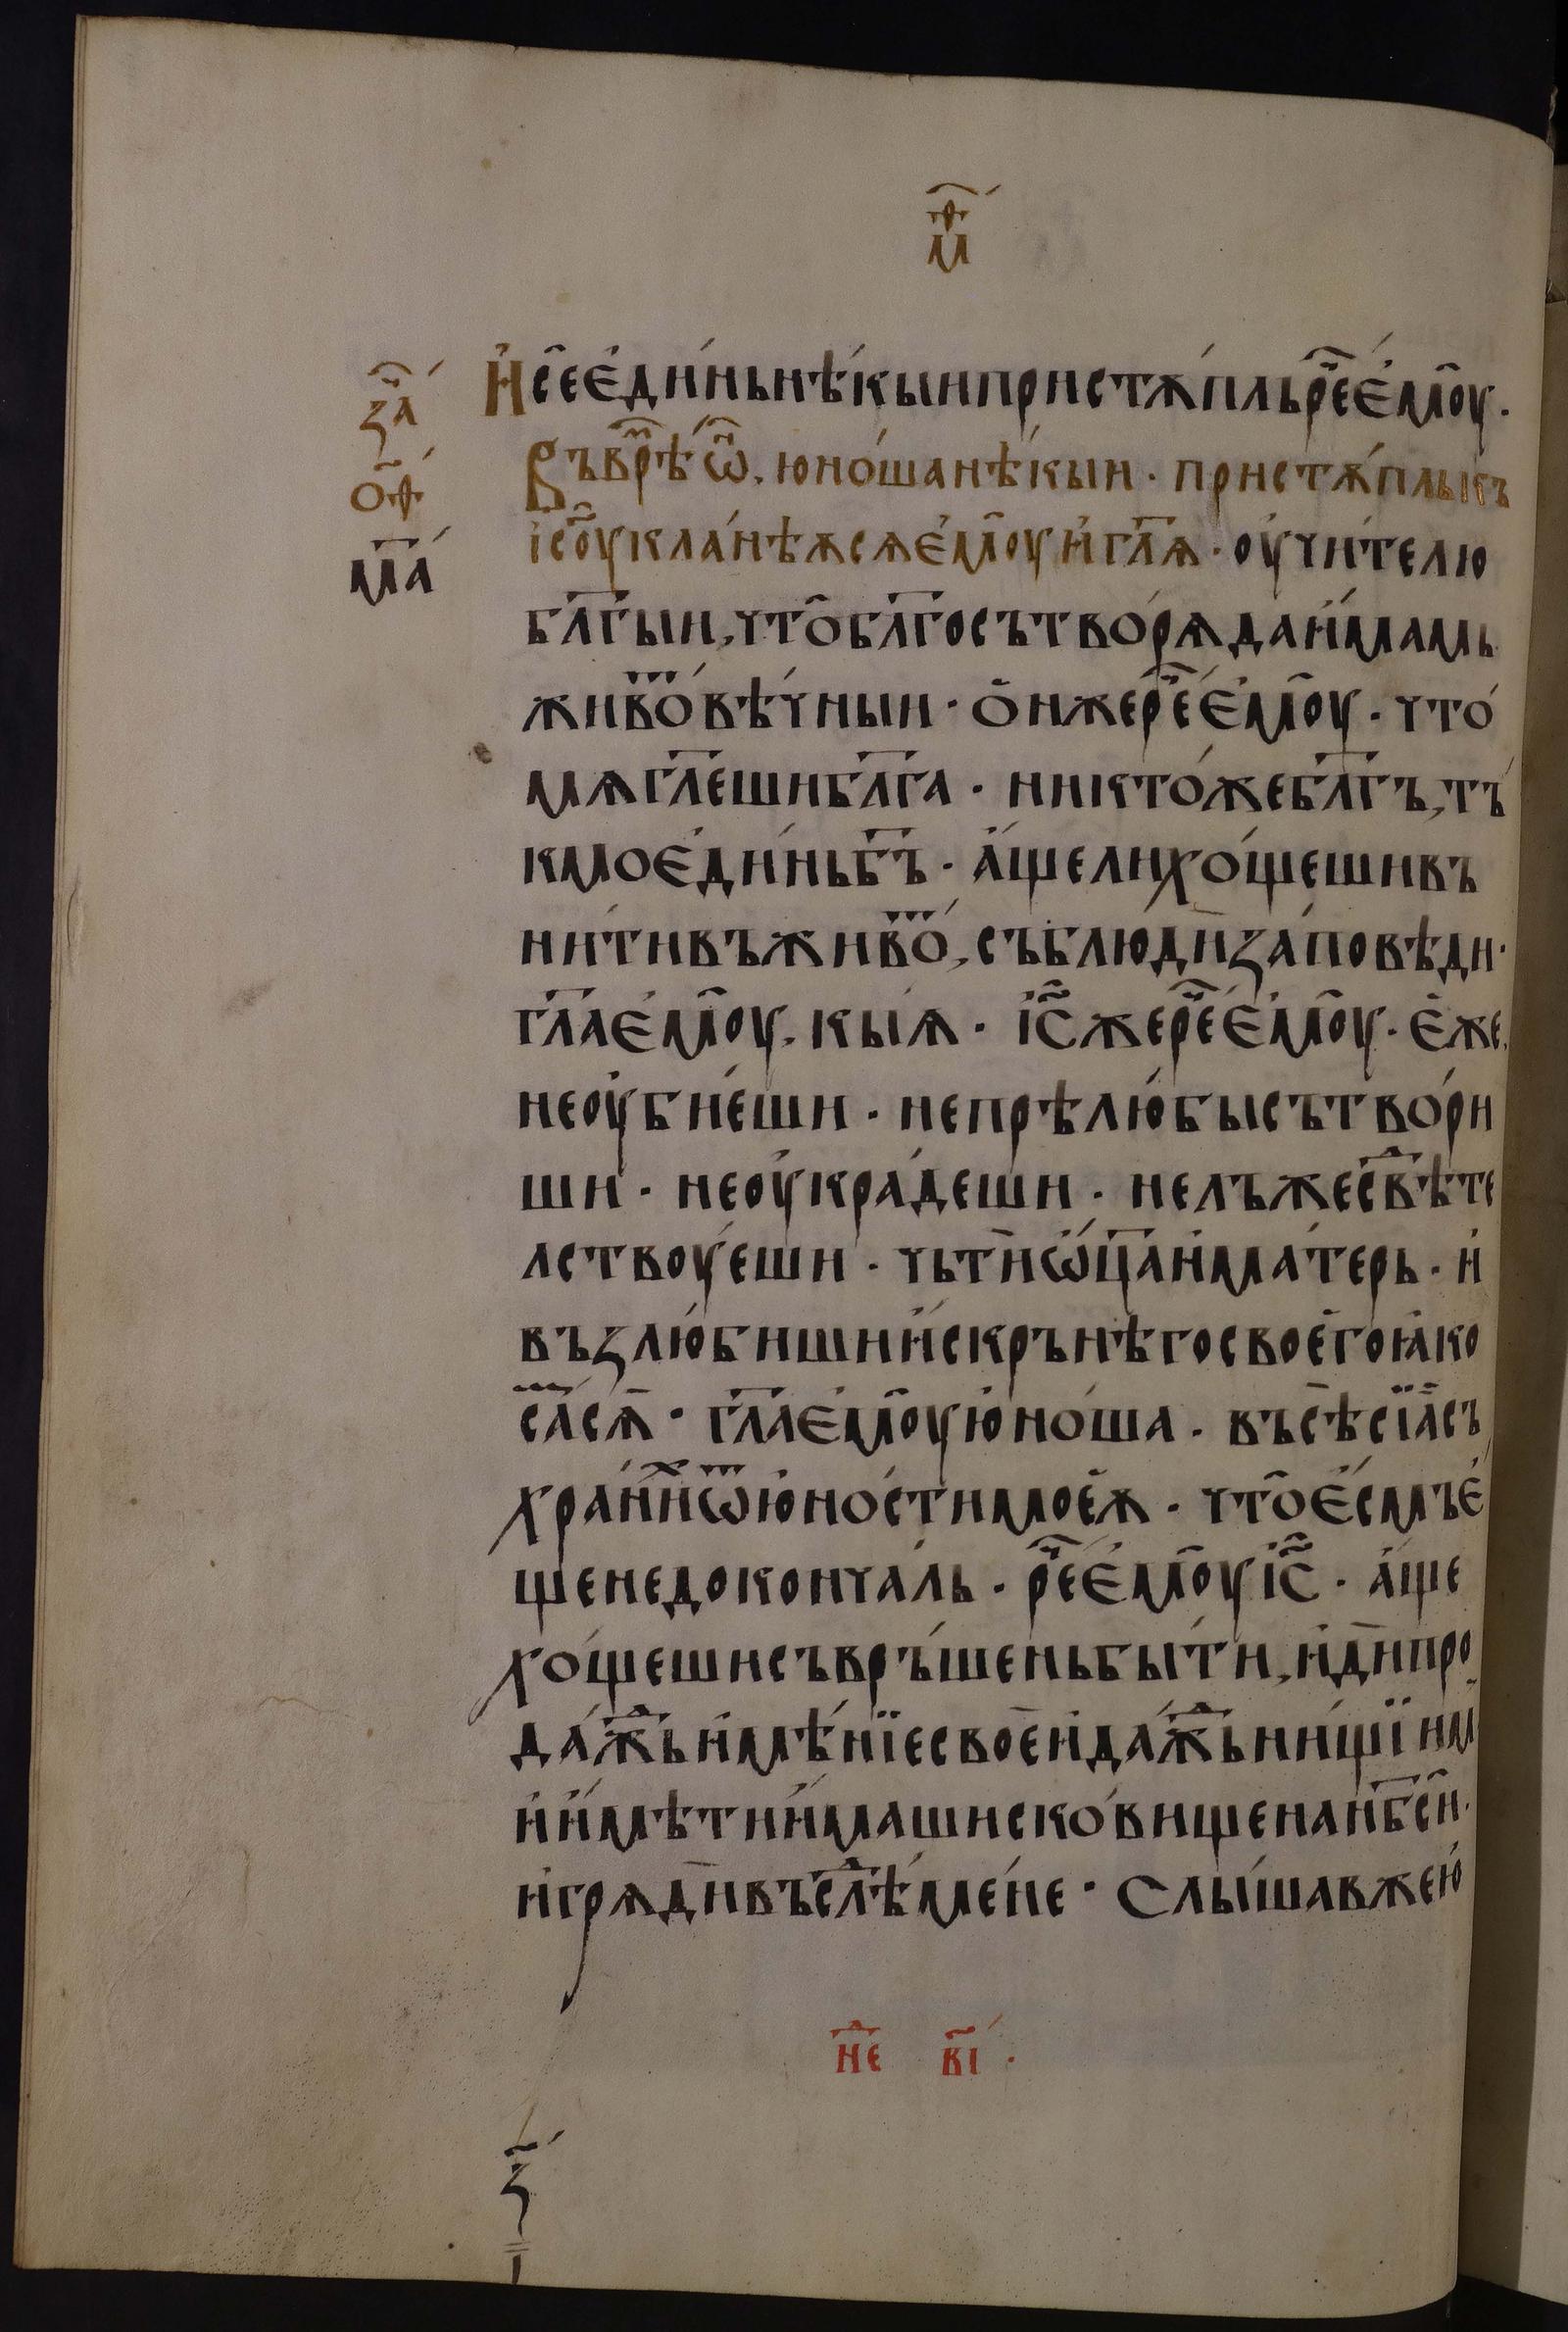 мт҃
И҆се҆е҆ди́ньнѣ́кыипристѫ́пльрⷱ҇ее҆мо҆у ·
зⷱ҇а
Въврⷨ҇ѣѡ҆н҇ , юно́шанѣ́кыи · пристѫ́плькъ
о҃ѳ
і҆с҃о҆укла́нѣѫсѧе҆мо҆уи҆гл҃ѧ · оу҆чи́телю
мⷮа
бл҃гыи , что̀бл҃госътво́рѧдаи҆мамь
живѡⷮ҇вѣ́чныи · о҆нжерⷱ҇ее҆мо҆у · что́
мѧгл҃ешибл҃га · никто́жебл҃гъ , тъ́
кмое҆ди́ньб҃ъ · а҆́щелихо́щешивъ
ни́тивъживоⷮ҇ , съблюдѝза́повѣди ·
гл҃ае҆мо҆у . кыѧ · і҆с҃жерⷱ҇ее҆мо҆у · е҆же .
неоу҆бїе́ши · непрѣлю́бысътво́ри
ши · неоу҆кра́деши · нелъжесвⷣ҇ѣте
лствоуе́ши · чьтѝѡ҆ц҃аи҆ма́терь · и҆
възлю́бишии҆́скрънѣгосвое҆гоꙗ҆ко
сⷨ҇асѧ̀ · гл҃ае҆мо҆ую҆но́ша · въсѣ̀сїа̀съ
хра́ниⷯ҇ѿю҆ностимое҆ѫ · что̀е҆смъе҆́
щенедокончаль · рⷱ҇ее҆мо҆уі҆с҃ · а҆́ще
хо́щешисъвръ́шеньбы́ти , и҆дѝпро
да́жⷣ҇ьи҆мѣ́нїесвоѐи҆да́жⷣ҇ьни́щїим
и҆и҆мѣтии҆́машиско́вищенанб҃си ·
и҆грѧдѝвъслⷣ҇ѣме́не · Слы́шавжею҆
нⷣ҇е в҃і ·
з҃